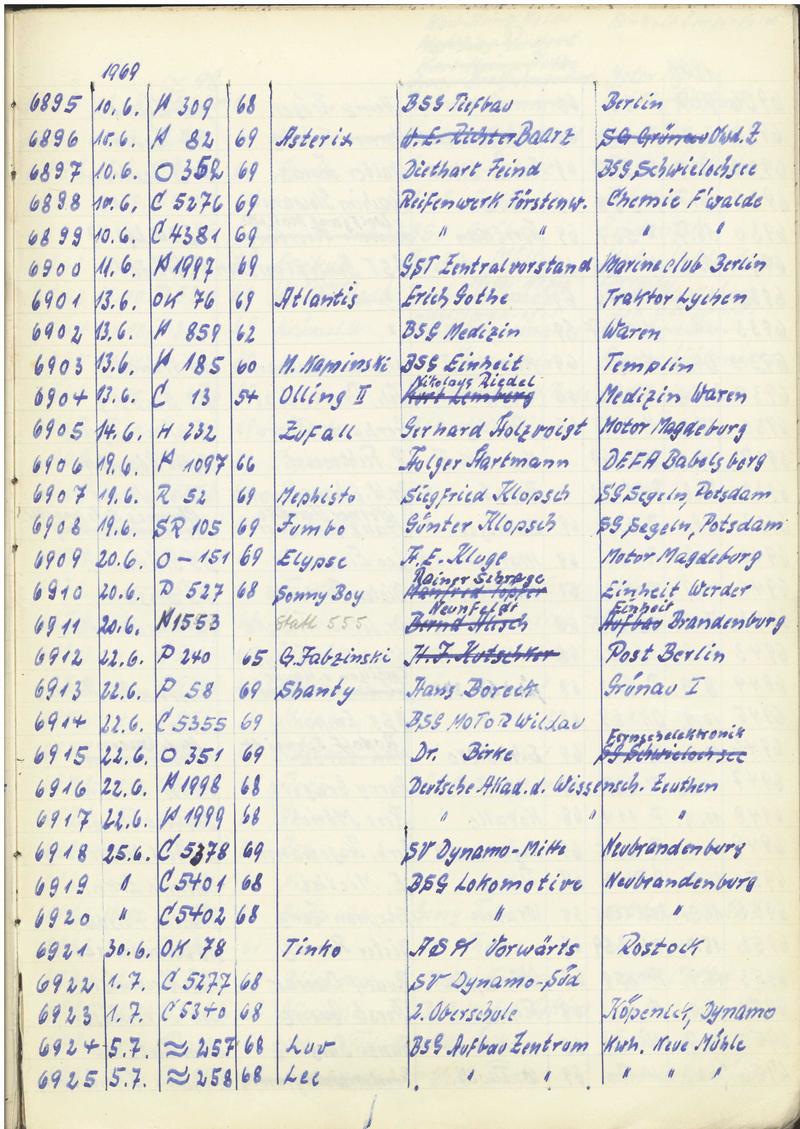 1969
6895 10.6. H 309 68 BSG Tiefbau Berlin
6896 10.6. H 82 69 Asterix W. E. Richter Baarz SG Grünau Owd. Z
6897 10.6. O 352 69 Diethart Feind BSG Schwielochsee
6898 10.6. C 5276 69 Reifenwerk Fürstenw. Chemie F'walde
6899 10.6. C 4381 69 " " " "
6900 11.6. H 1997 69 GST Zentralvorstand Marineclub Berlin
6901 13.6. OK 76 69 Atlantis Erich Gothe Traktor Lychen
6902 13.6. H 859 62 BSG Medizin Waren
6903 13.6. H 185 60 M. Kaminski BSG Einheit Templin
Nikolaus Riedel
6904 13.6. C 13 54 Olling II Kurt Lemberg Medizin Waren
6905 14.6. H 232 Zufall Gerhard Holzvoigt Motor Magdeburg
6906 19.6. H 1097 66 Holger Hartmann DEFA Babelsberg
6907 19.6. R 52 69 Mephisto Siegfried Klopsch SG Segeln, Potsdam
6908 19.6. SR 105 69 Jumbo Günter Klopsch SG Segeln, Potsdam
6909 20.6. O-151 69 Elypse H. E. Kluge Motor Magdeburg
Rainer Schrage
6910 20.6. P 527 68 Sonny Boy Manfred Töpfer Einheit Werder
Neunfeldt Einheit
6911 20.6. H 1553 statt 555 Bernd Aufbau Brandenburg
6912 22.6. P 240 65 G. Fabzinski H. J. Kutschker Post Berlin
6913 22.6. P 58 69 Shanty Hans Boreck Grünau I
6914 22.6. C 5355 69 BSG MoToR Wildau
Fernsehelektronik
6915 22.6. O 351 69 Dr. Birke SG Schwielochsee
6916 22.6. H 1998 68 Deutsche Akad. d. Wissensch. Zeuthen
6917 22.6. H 1999 68 " " "
6918 25.6. C 5378 69 SV Dynamo-Mitte Neubrandenburg
6919 " C 5401 68 BSG Lokomotive Neubrandenburg
6920 " C 5402 68 " "
6921 30.6. OK 78 Tinko ASK Vorwärts Rostock
6922 1.7. C 5277 68 SV Dynamo-Süd
6923 1.7. C 5340 68 2. Oberschule Köpenick, Dynamo
6924 5.7. ≈ 257 68 Luv BSG Aufbau Zentrum Kwh. Neue Mühle
6925 5.7. ≈ 258 68 Lee " " " " "